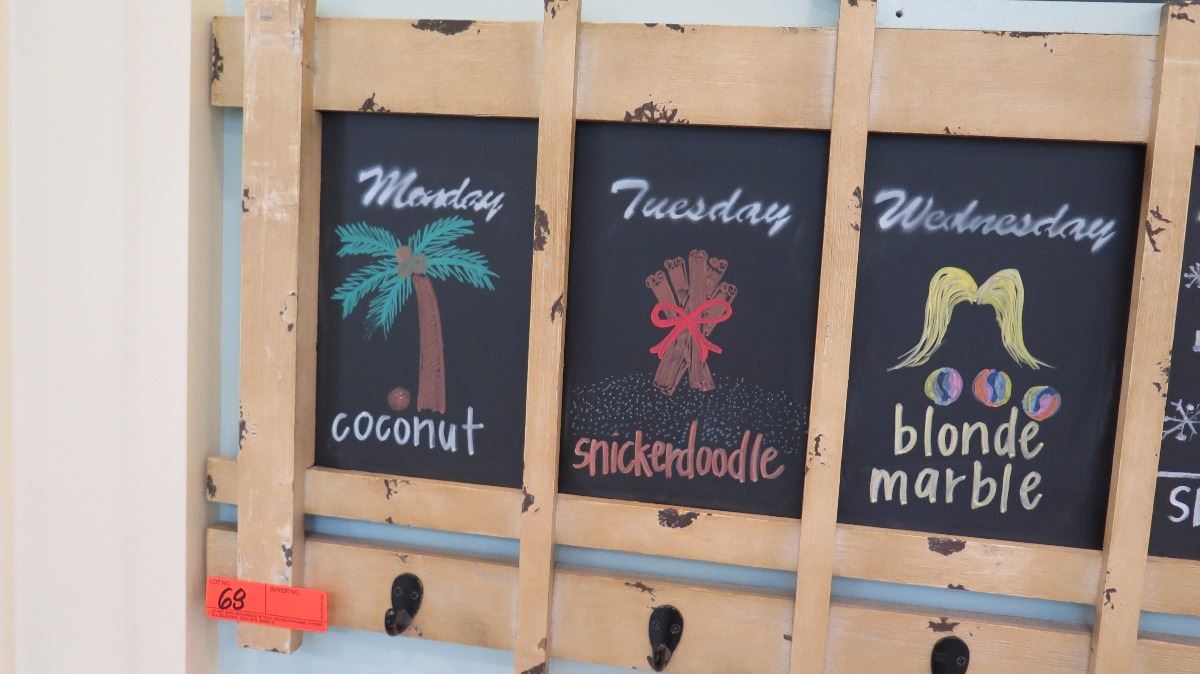 Monday
coconut
Tuesday
snickerdoodle
Wednesday
blonde
marble
LOT NO.
68
BUYER NO.